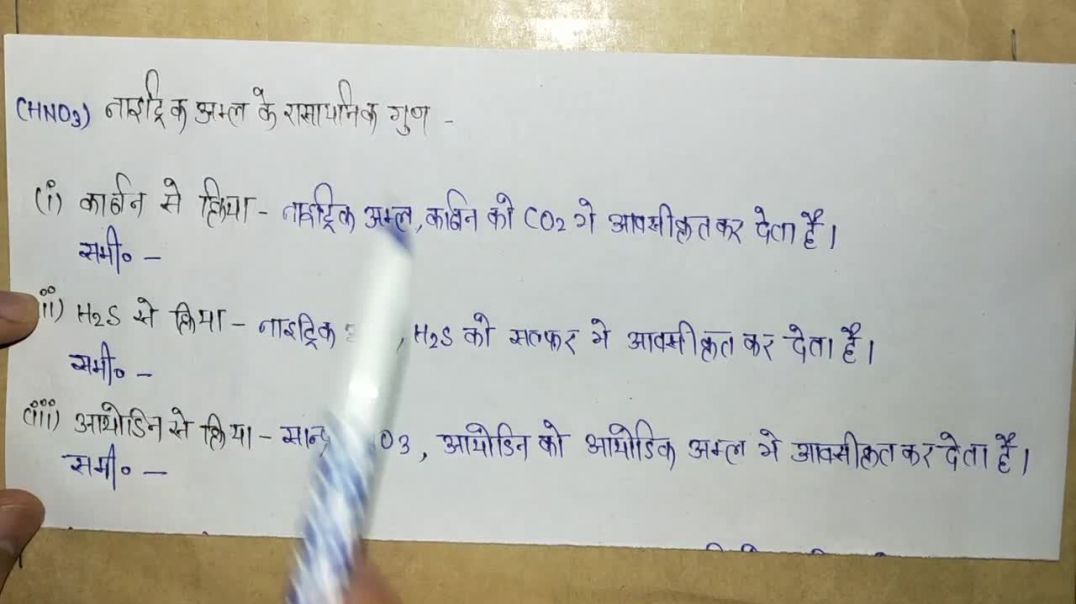 (HNO3) नाइट्रिक अम्ल के रासायनिक गुण -
(i) कार्बन से क्रिया - नाइट्रिक अम्ल, कार्बन को CO2 मे आक्सीकृत कर देता है।
समी० -
ii) H2S से क्रिया - नाइट्रिक , H2S को सल्फर मे आक्सीकृत कर देता है।
समी० -
(iii) आयोडिन से क्रिया - सान्द्र O3, आयोडिन को आयोडिक अम्ल मे आक्सीकृत कर देता है।
समी० -